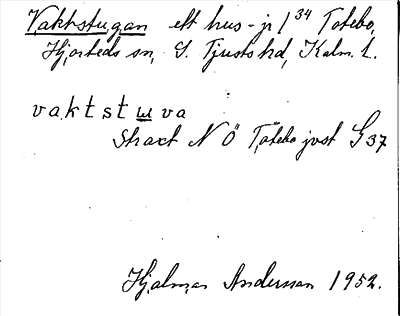 Vaktstugan ett hus - jr 1 34 Totebo,
Hjorteds sn, S. Tjusts hd, Kalm. l.
vaktstuva
Strax N Ö Totebo jvst G 37
Hjalmar Andersson 1952.